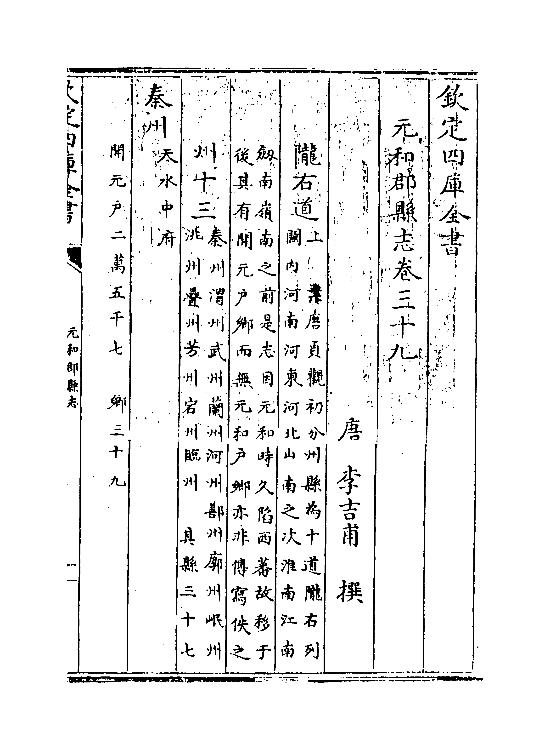 欽定四庫全書
元和郡縣志卷三十九
唐 李吉甫 撰
隴右道上 案唐貞觀初分州縣為十道隴右列
關内河南河東河北山南之次淮南江南
劔南嶺南之前是志因元和時久陷西蕃故移于
後其有開元戸鄉而無元和戸鄉亦非傳寫佚之
州十三 秦州渭州武州蘭州河州鄯州廓州岷州
洮州疊州芳州宕州臨州 具縣三十七
秦州 天水中府
開元戸二萬五千七 鄉三十九
欽定四庫全書
元和郡縣志
一